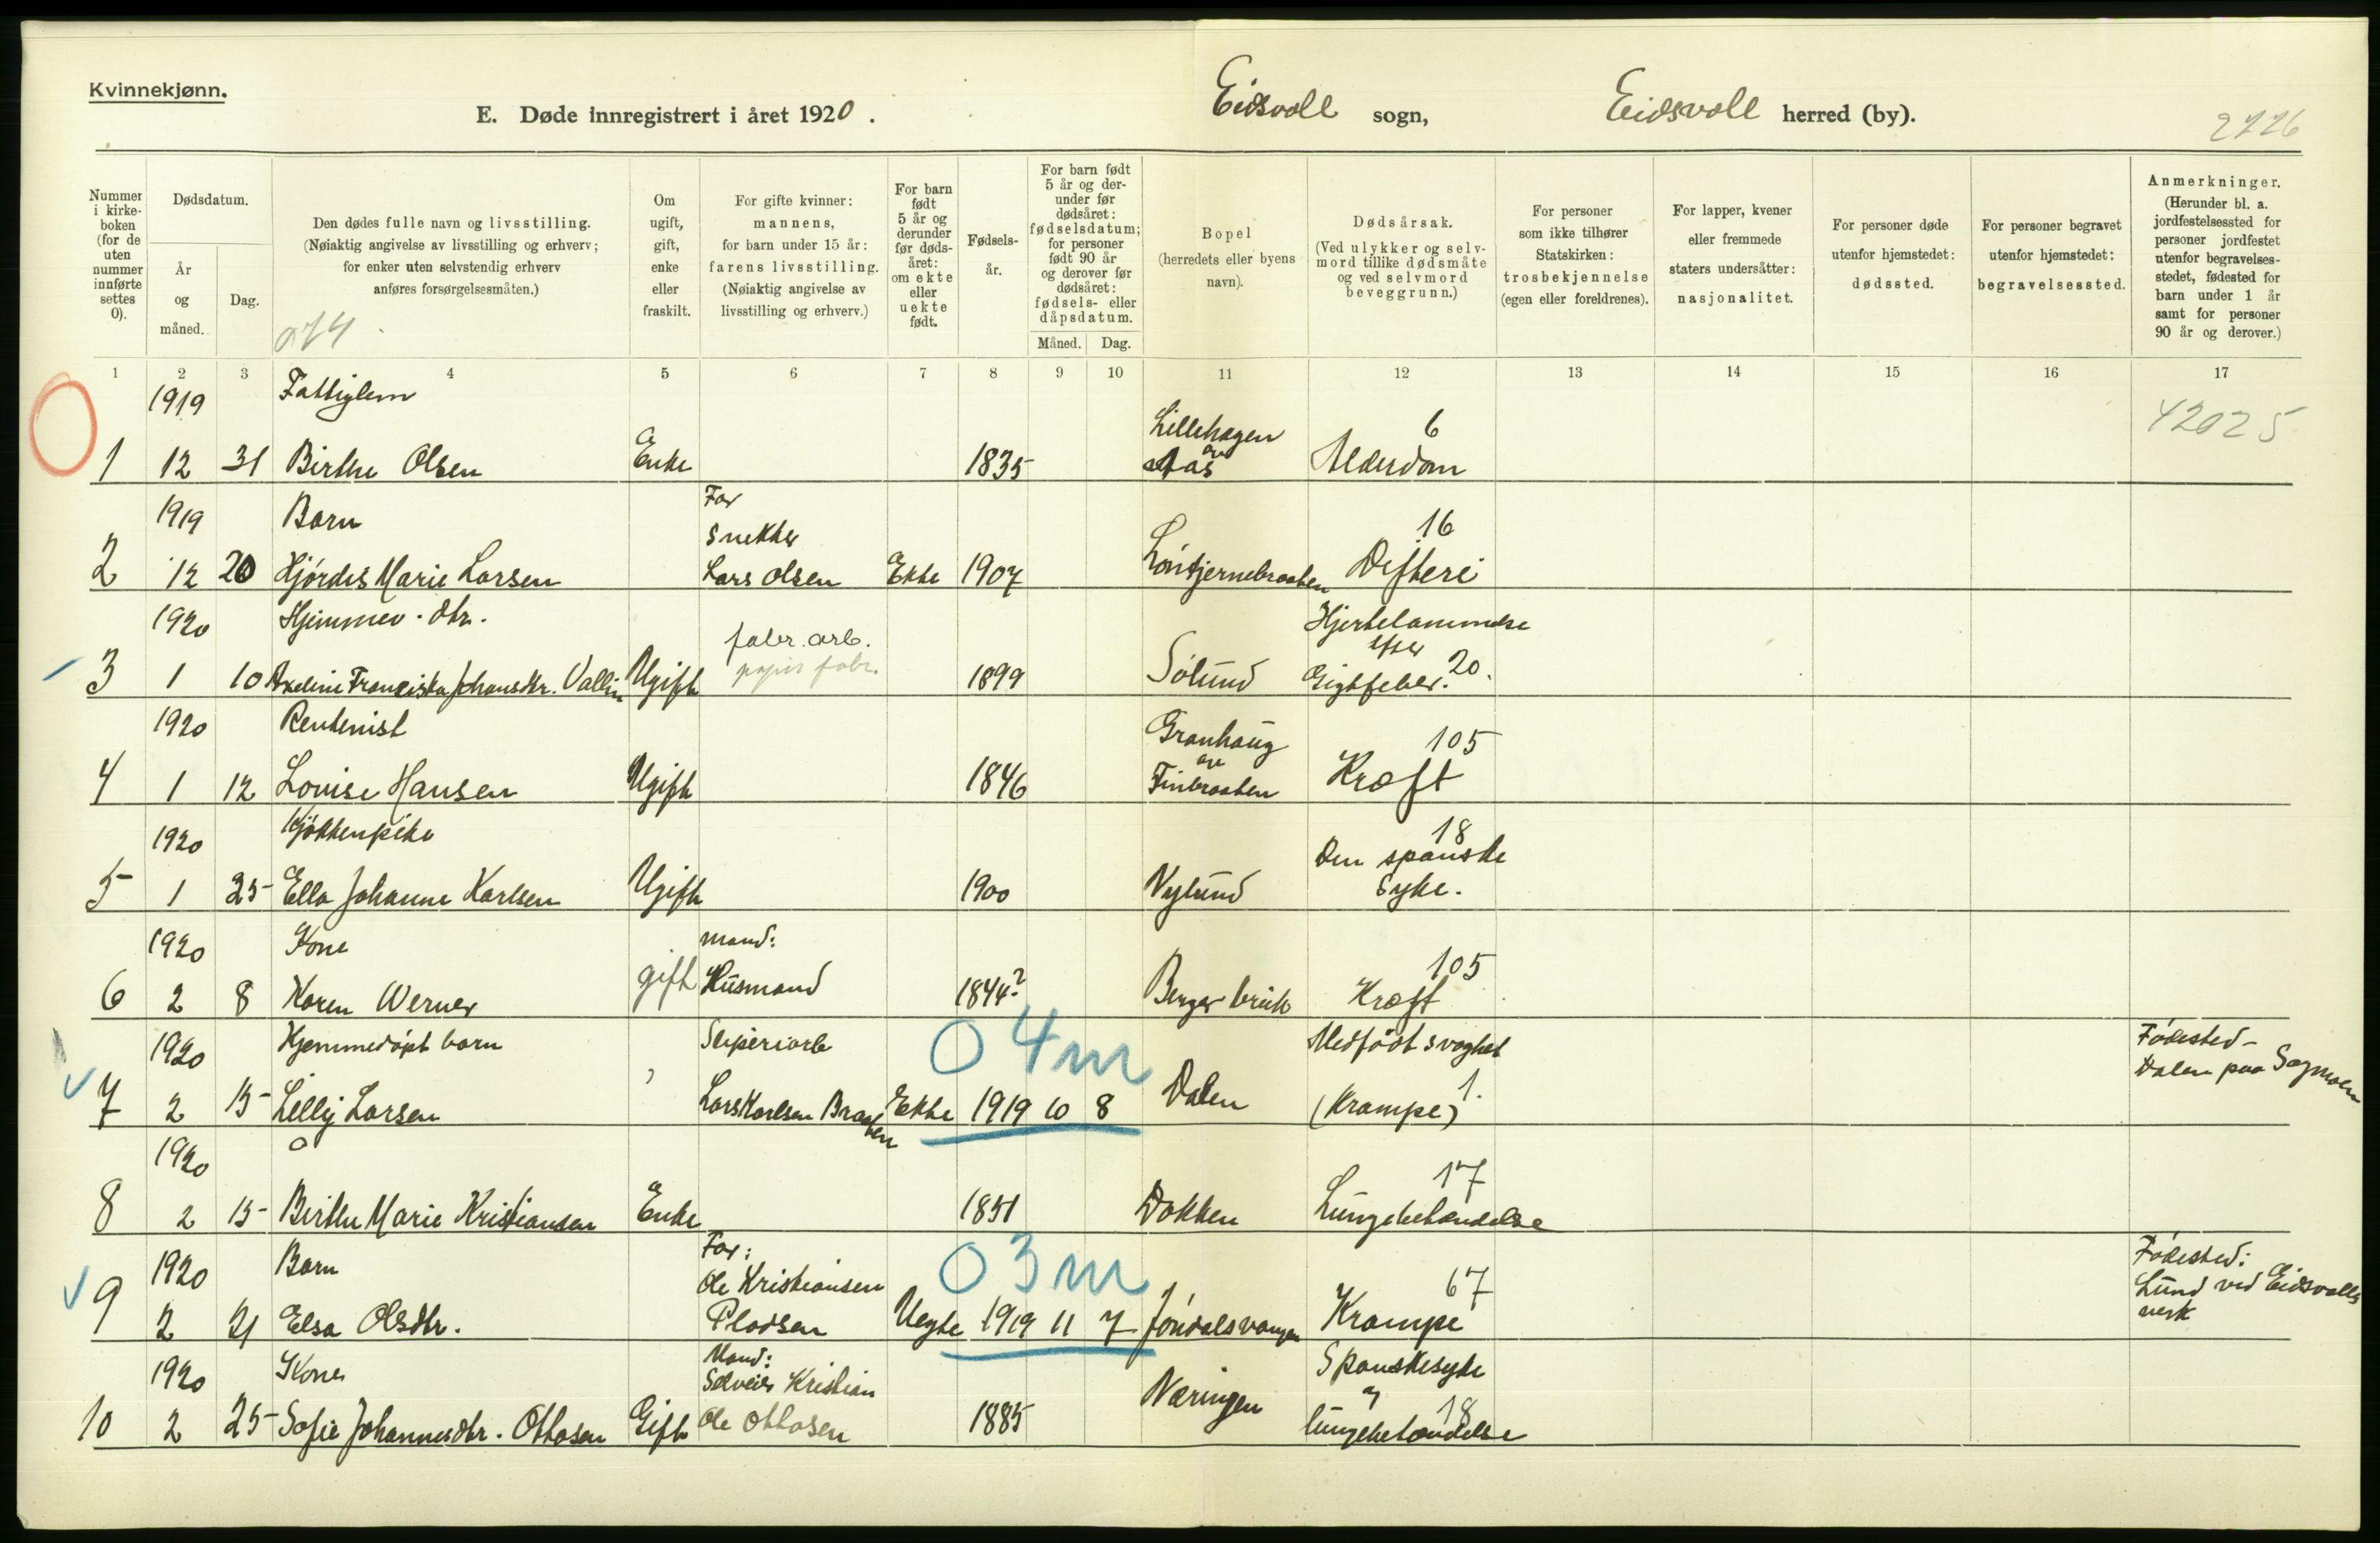 Kvinnekjønn.
E. Døde innregistrert i året 1920. Eidsvoll sogn, Eidsvoll herred (by).
2726
Nummer i kirke-boken (for de uten nummer innførte settes 0).
Dødsdatum.
År og måned.
Dag.
Den dødes fulle navn og livsstilling.
(Nøiaktig angivelse av livsstilling og erhverv;
for enker uten selvstendig erhverv
anføres forsørgelsesmåten.)
Om ugift, gift, enke eller fraskilt.
For gifte kvinner:
mannens,
for barn under 15 år:
farens livsstilling.
(Nøiaktig angivelse av
livsstilling og erhverv.)
For barn født 5 år og derunder før døds-året: om ekte eller uekte født.
Fødsels-år.
For barn født 5 år og der-under før dødsåret: fødselsdatum; for personer født 90 år og derover før dødsåret: fødsels- eller dåpsdatum.
Måned. Dag.
Bopel
(herredets eller byens
navn).
Dødsårsak.
(Ved ulykker og selv-
mord tillike dødsmåte
og ved selvmord
beveggrunn.)
For personer
som ikke tilhører
Statskirken:
trosbekjennelse
(egen eller foreldrenes).
For lapper, kvener
eller fremmede
staters undersåtter:
nasjonalitet.
For personer døde
utenfor hjemstedet:
dødssted.
For personer begravet
utenfor hjemstedet:
begravelsessted.
Anmerkninger.
(Herunder bl. a.
jordfestelsessted for
personer jordfestet
utenfor begravelses-
stedet, fødested for
barn under 1 år
samt for personer
90 år og derover.)
1 2 3 4 5 6 7 8 9 10 11 12 13 14 15 16 17
1919 Fattiglem Lillehagen 6 42025
1 12 31 Birthe Olsen Enke 1835 Aas Alderdom
1919 Barn Far Snekker 16
2 12 20 Hjørdis Marie Larsen Lars Olsen Ekte 1907 Difteri
1920 Hjemmev. dtr. fabr. arb. Hjertelammelse efter
3 1 10 Axeline Franciska Johansdtr. Vallin Ugift papir fabr. 1899 Solund Gigtfeber. 20.
1920 Rentenist Granhaug 105
4 1 12 Lovise Hansen Ugift 1846 Finbraaten Kræft
1920 Kjøkkenpike 18 Den spanske
5 1 25 Ella Johanne Karlsen Ugift 1900 Nylund Syke.
1920 Kone mand: 105
6 2 8 Karen Werner gift Husmand 1844? Berger bruk Kræft
1920 Hjemmedøpt barn Sliperiarb 04m Medfødt svaghet Fødested-
7 2 15 Lilly Larsen Lars Karlsen Braaten Ekte 1919 10 8 Dalen (Krampe) 1. Dalen paa Sagmoen
1920 17
8 2 15 Birthe Marie Kristiansen Enke 1851 Dokken Lungebetændelse
1920 Barn Far: Ole Kristiansen 03m 67 Fødested: Lund ved Eidsvolls
9 2 21 Elsa Olsdtr. Pladsen Uegte 1919 11 7 Jøndalsvangen Krampe verk
1920 Kone Mand: Selveier Kristian Spanskesyke
10 2 25 Sofie Johannesdtr. Ottosen Gift Ole Ottosen 1885 Næringen 18 lungebetændelse